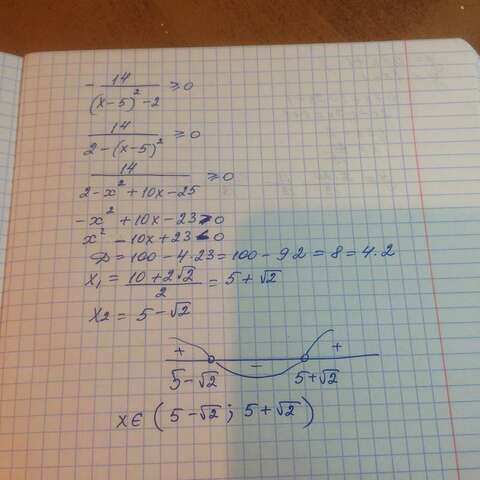 - 14/((x-5)²-2) ≥ 0
14/(2-(x-5)²) ≥ 0
14/(2-x²+10x-25) ≥ 0
-x²+10x-23>0
x²-10x+23<0
D=100-4·23=100-92=8=4·2
x₁ = (10+2√2)/2 = 5+√2
x₂ = 5-√2
+ - +
5-√2 5+√2
x∈(5-√2; 5+√2)